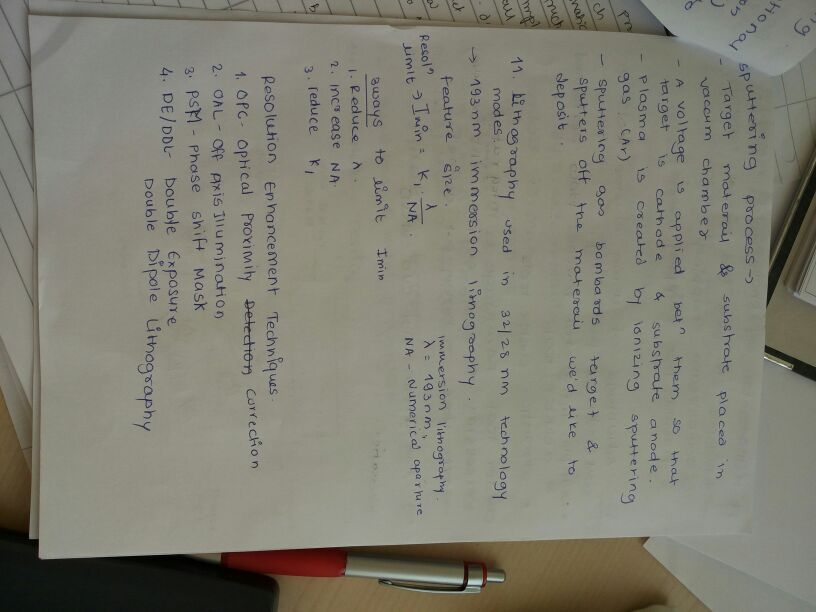 sputtering process →
- Target materail & substrate placed in
vaccum chamber
- A voltage is applied betⁿ them so that
target is cathode & substrate anode.
- plasma is created by ionizing sputtering
gas. (Ar)
- sputtering gas bombards target &
sputters off the materail we'd like to
deposit.
11. Lithography used in 32/28 nm technology
modes.
→ 193 nm immersion lithography.
feature size.
Resolⁿ
limit → Imin = K1 . λ / NA .
immersion lithography.
λ = 193 nm,
NA - Numerical aparture
3ways to limit Imin
1. Reduce λ.
2. increase NA
3. reduce K1
Resolution Enhancement Techniques.
1. OPC - Optical Proximity Detection Correction
2. OAL - Off Axis Illumination
3. PSM - Phase Shift Mask
4. DE/DDL - Double Exposure
Double Dipole Lithography